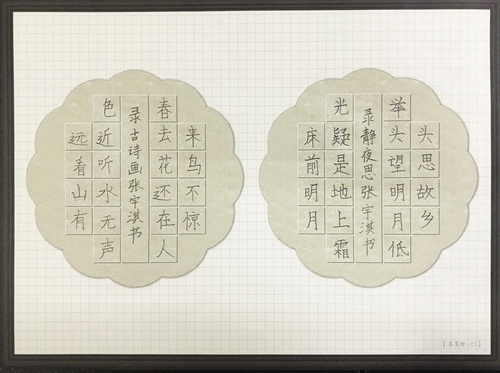 远看山有
色近听水无声
录古诗画张宇淇书
春去花还在人
来鸟不惊
床前明月
光疑是地上霜
录静夜思张宇淇书
举头望明月低
头思故乡